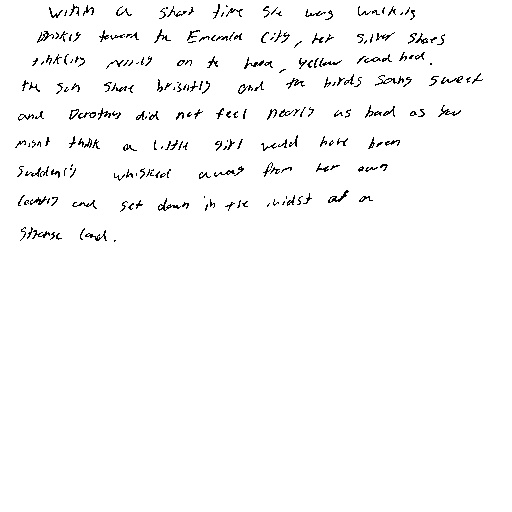 within a short time she was walking
briskly toward the Emerald City, her Silver Shoes
tinkling merrily on the hard, yellow road bed.
the sun shone brightly and the birds sang sweet
and Dorothy did not feel nearly as bad as you
might think a little girl would have been
suddenly whisked away from her own
country and set down in the midst of a
strange land.